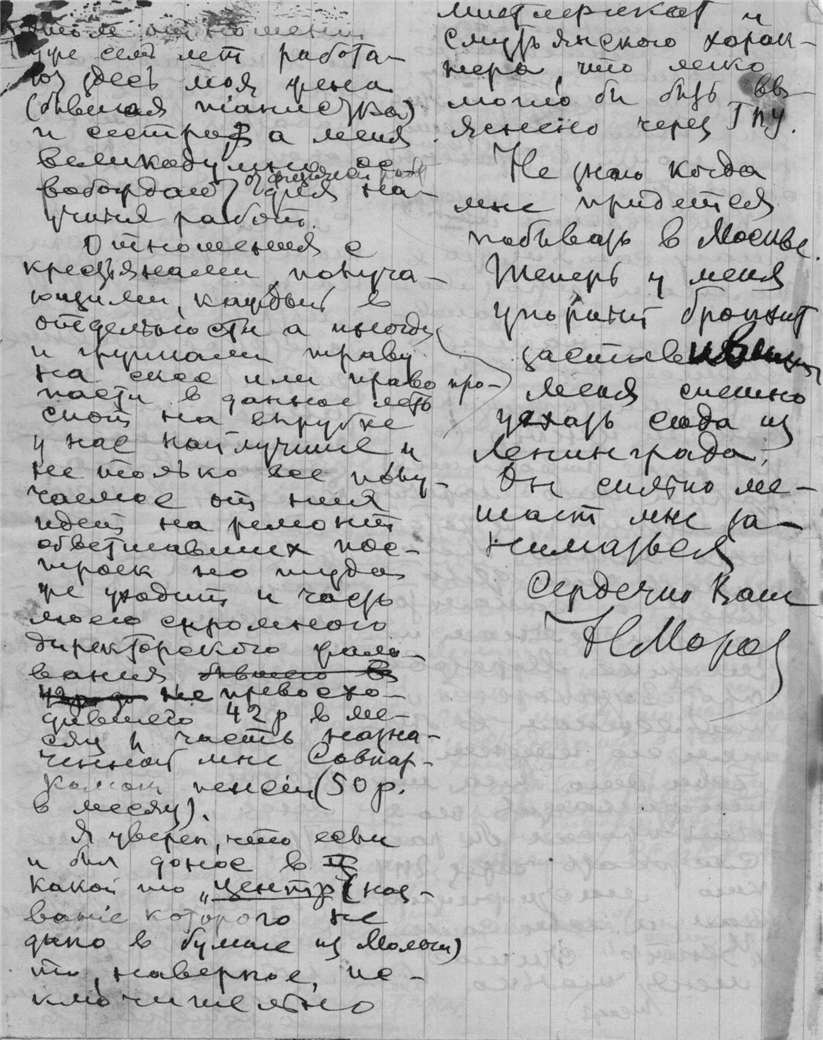 этом отношении
уже семь лет работа-
ют здесь моя жена
(бывшая пианистка)
и сестра, а меня
великодушно ос
вобождают для на-
учных работ.
Отношения с
крестьянами, получа-
ющими, каждый в
отдельности а иногда
и группами траву
на сено или право про-
пасти в данное лето
скот на вырубке
у нас наилучшие и
не только все полу-
чаемое от них
идет на ремонт
обветшавших пос-
троек но туда
же уходит и часть
моего скромного
директорского жало-
вания
не превосхо-
дившего 42 р в ме-
сяц и часть назна-
ченной мне Совнар-
комом пенсии (50 р.
в месяц).
Я уверен, что если
и был донос в
какой то „центр" (наз-
вание которого не
дано в бумаге из Мологи)
то, наверное, ис-
ключительно
мистического и
характера, что легко
могло бы быть вы-
яснено через ГПУ.
Не знаю когда
мне придется
побывать в Москве.
Теперь у меня
упорный бронхит
заставивший
меня спешно
уехать сюда из
Ленинграда.
Он сильно ме-
шает мне за-
ниматься
Сердечно Ваш
НМороз